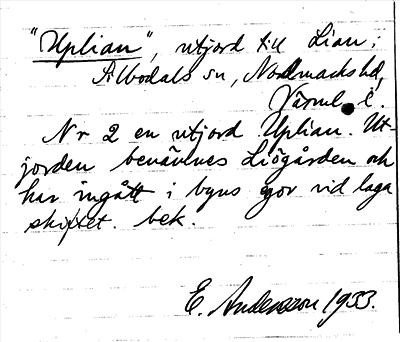 "Uplian", utjord till Lian i
Älbodals sn, Nordmarks hd,
Värml. l.
Nr 2 en utjord Uplian. Ut-
jorden benämnes Liögården och
har ingått i byns egor vid laga
skiftet. bek.
E. Andersson 1933.